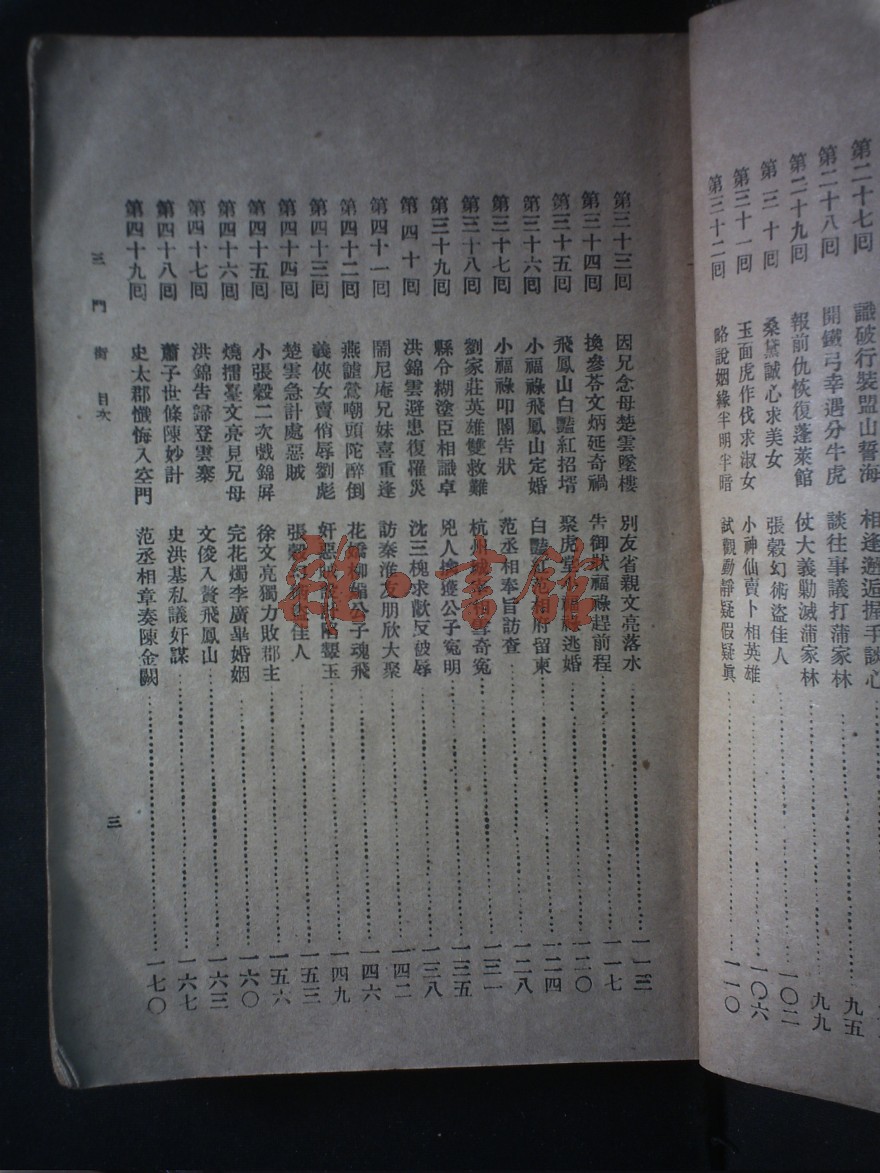 第二十七囘 識破行裝盟山誓海 相逢邂逅握手談心
第二十八囘 開鐵弓幸遇分牛虎 談往事議打蒲家林 九五
第二十九囘 報前仇恢復蓬萊館 仗大義勦滅蒲家林 九九
第三十囘 桑黛誠心求美女 張穀幻術盜佳人 一〇二
第三十一囘 玉面虎作伐求淑女 小神仙賣卜相英雄 一〇六
第三十二囘 略說姻緣半明半暗 試觀動靜疑假疑眞 一一〇
第三十三囘 因兄念母楚雲墜樓 別友省親文亮落水 一一三
第三十四囘 換參苓文炳延奇禍 告御狀福祿趕前程 一一七
第三十五囘 飛鳳山白豔紅招壻 聚虎堂小福祿逃婚 一二〇
第三十六囘 小福祿飛鳳山定婚 白豔紅范相府留柬 一二四
第三十七囘 小福祿叩閽告狀 范丞相奉旨訪查 一二八
第三十八囘 劉家莊英雄雙救難 杭州城宰相雪奇寃 一三一
第三十九囘 縣令糊塗臣相識卓 兇人擒獲公子寃明 一三五
第四十囘 洪錦雲避患復罹災 沈三槐求歡反被辱 一三八
第四十一囘 鬧尼庵兄妹喜重逢 訪秦淮友朋欣大聚 一四二
第四十二囘 燕謔鶯嘲頭陀醉倒 花嬌柳媚公子魂飛 一四六
第四十三囘 義俠女賣俏辱劉彪 奸惡 玉 一四九
第四十四囘 楚雲急計處惡賊 張穀幻術 佳人 一五三
第四十五囘 小張穀二次戲錦屏 徐文亮獨力敗郡主 一五六
第四十六囘 燒擂臺文亮見兄母 完花燭李廣畢婚姻 一六〇
第四十七囘 洪錦告歸登雲寨 文俊入贅飛鳳山 一六三
第四十八囘 蕭子世條陳妙計 史洪基私議奸謀 一六七
第四十九囘 史太郡懺悔入空門 范丞相章奏陳金闕 一七〇
三門街 目次
三